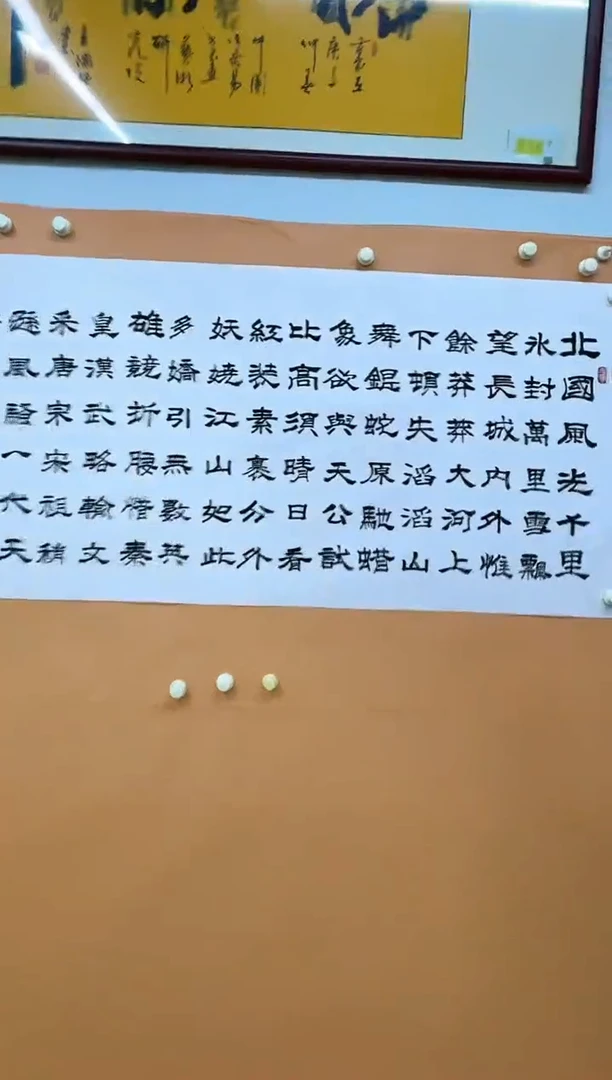 北國風光千里
氷封萬里雪飄
望長城内外惟
餘莽莽大河上
下頓失滔滔山
舞銀蛇原馳蜡
象欲與天公試
比高須晴日看
紅裝素裹分外
妖嬈江山如此
多嬌引無數英
雄競折腰惜秦
皇漢武略輸文
采唐宗宋祖稍
遜風騷一代天